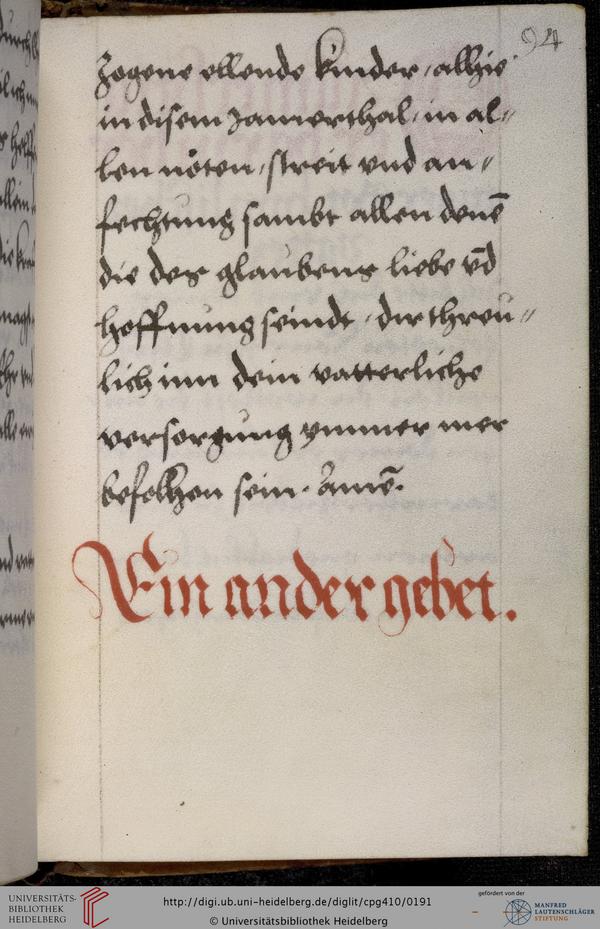 94
zogene ellende kinder, allhie
in disem Jamerthal, in al〃
len nöten, streit vnd an〃
fechtung sambt allen denē
die des glaubens liebe vn̄d
hoffnung seindt, dir threu〃
lich inn dein vatterliche
versorgung ymmer mer
befolhen sein. Amē.
Ein ander gebet.
UNIVERSITÄTS-
BIBLIOTHEK
HEIDELBERG
http://digi.ub.uni-heidelberg.de/diglit/cpg410/0191
© Universitätsbibliothek Heidelberg
gefördert von der
MANFRED
LAUTENSCHLÄGER
STIFTUNG